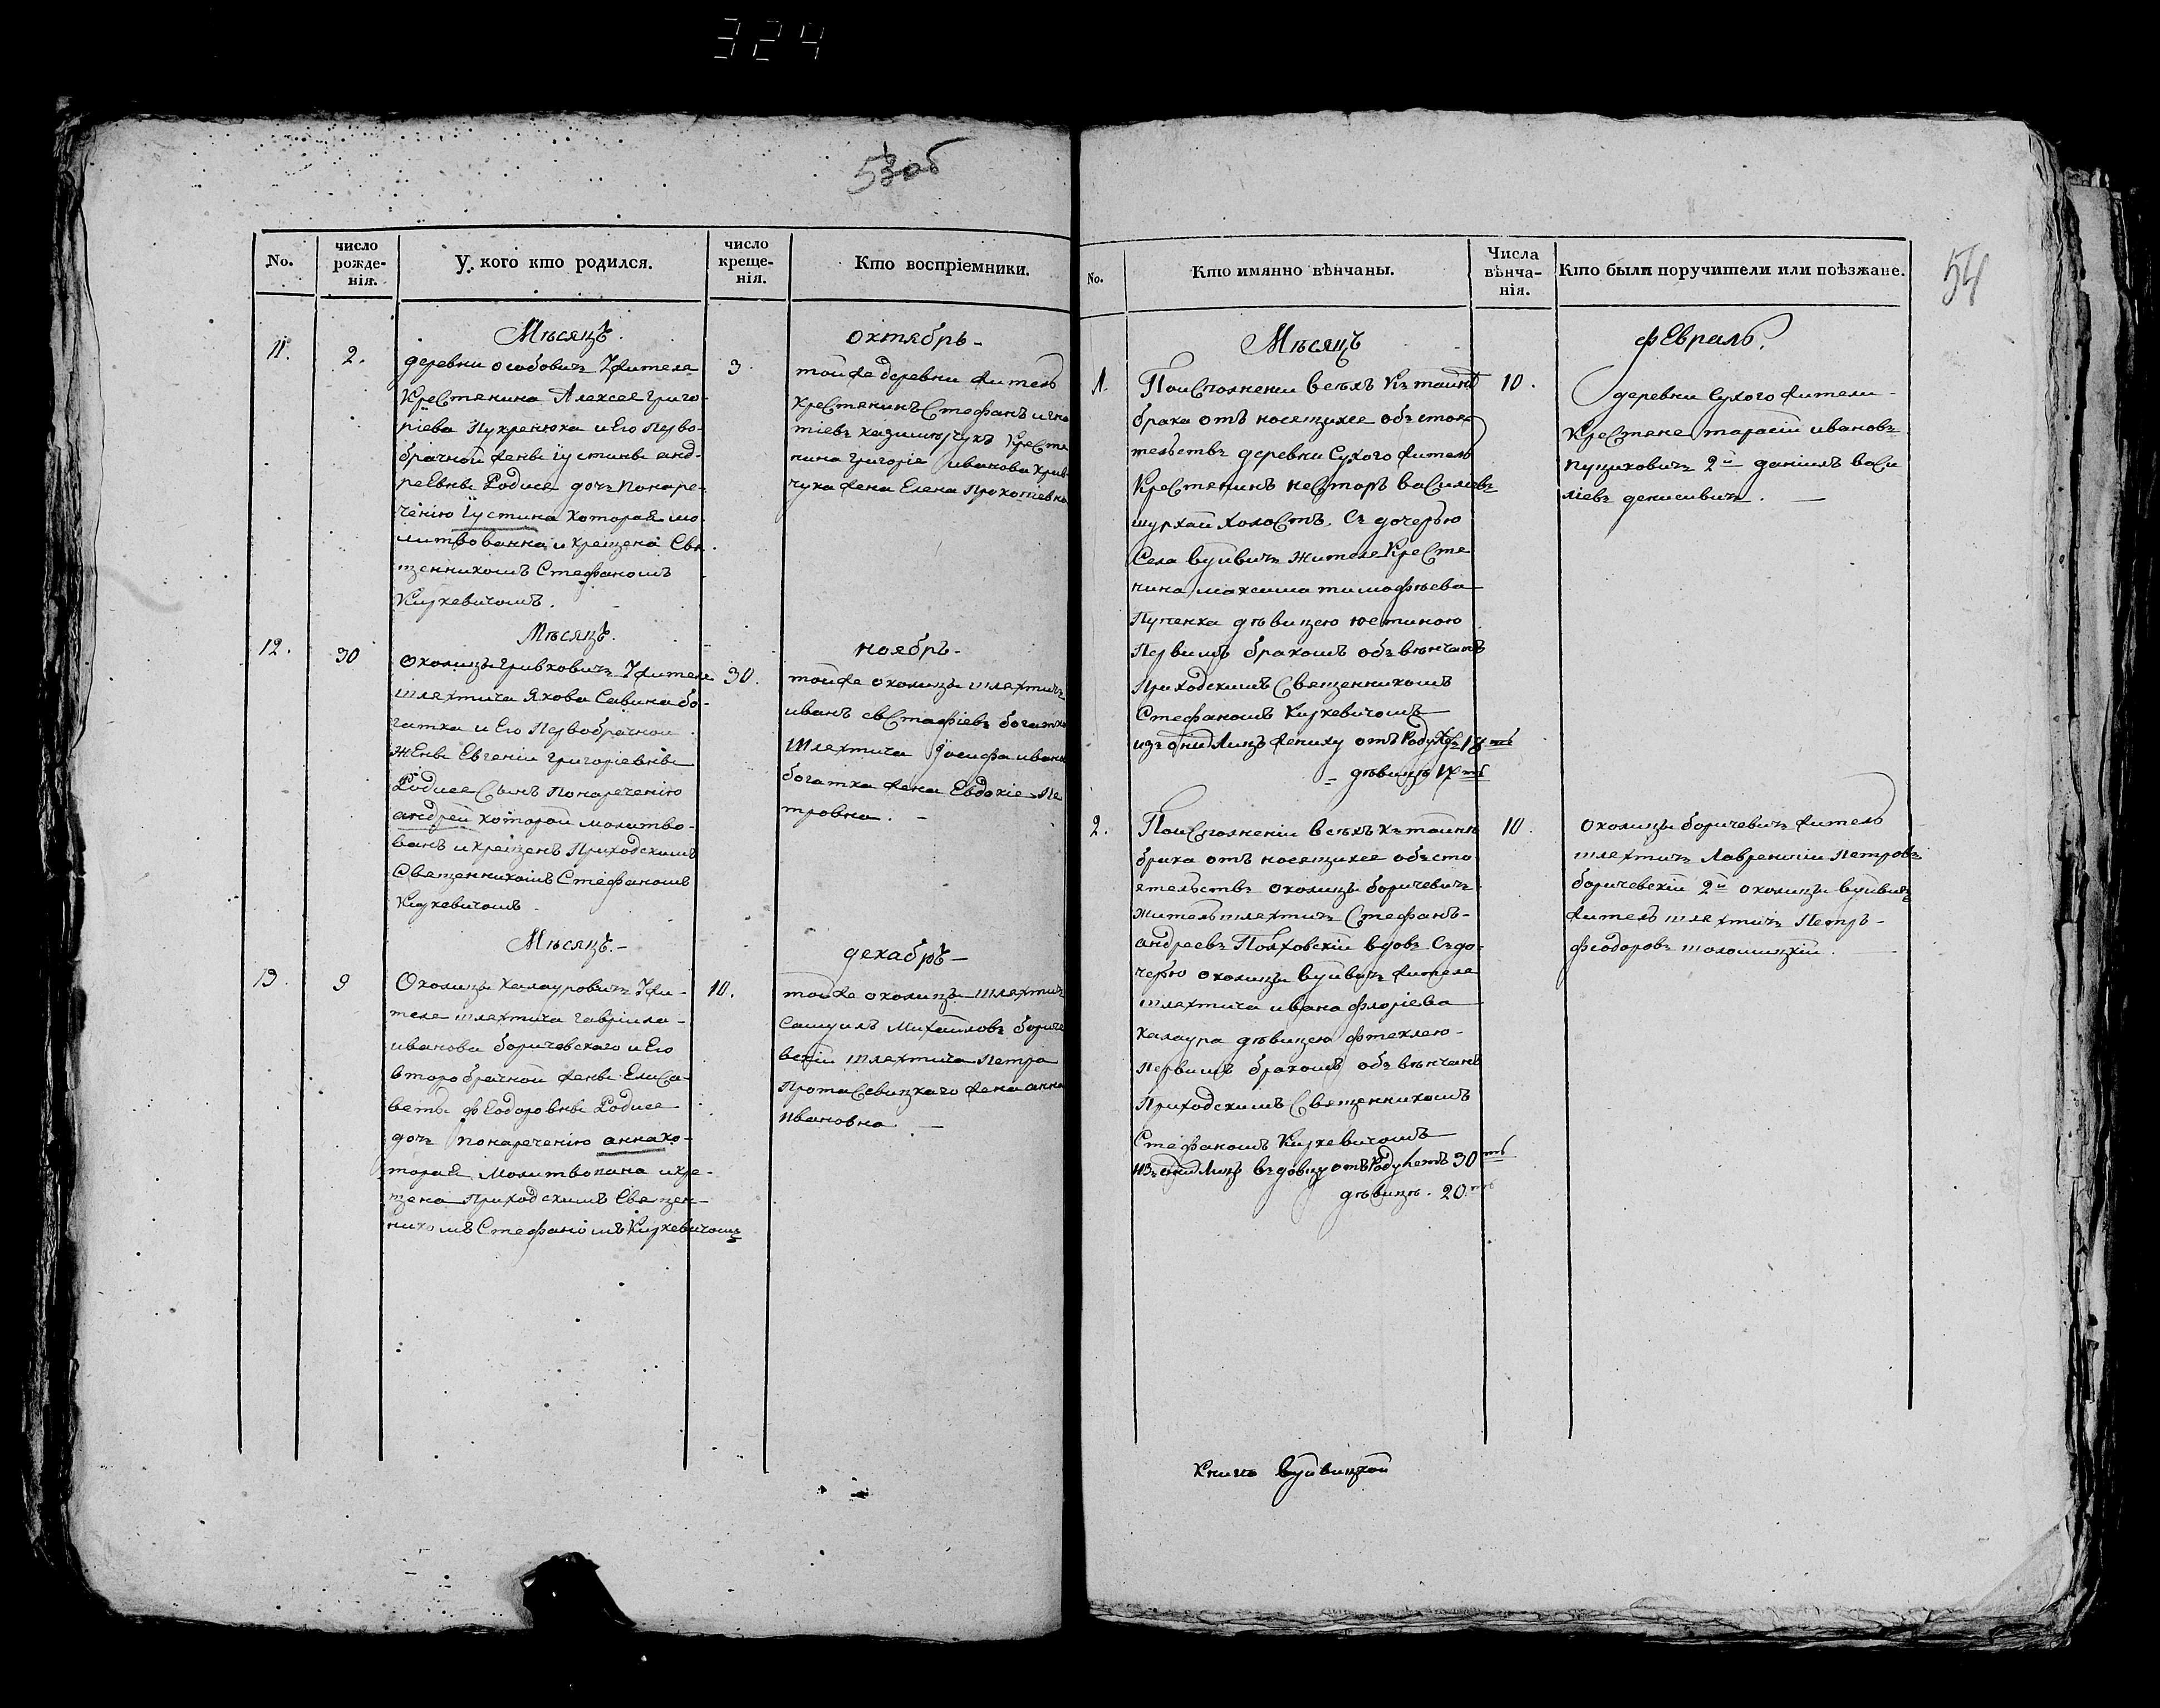 324
53об
No.
число рожде-нія.
У кого кто родился.
число креще-нія.
Кто воспріемники.
Мѣсяцъ.
октябрь
11.
2.
3.
деревни особовичъ Жителя
Крестянина Алексея Григо-
ріева Пухренюка и Его Перво-
брачной жены Іустины анд-
реЕвны Родися дочь Понаре-
ченію Іустина которая мо-
литвованна и крещена Свя-
щенникомъ Стефаномъ
Киркевичомъ.
тойже деревни житель
крестянинъ Стефанъ игна
тіевъ казимирчукъ Крестя
нина григорія иванова крив
чука жена Елена Прокопіевна
Мѣсяцъ.
ноябрь
12.
30
30.
Околицы гривковичъ Жителя
шляхтича Якова Савина бо-
гатка и Его Первобрачной
жЕны Евгеніи григоріевны
Родися Сынъ Понареченію
андрей которой молитво-
ванъ и крещенъ Приходскимъ
Священникомъ Стефаномъ
Киркевичомъ
тойже околицы шляхтичъ
иванъ евстафіевъ богатко
шляхтича Іосифа ивана
богатка жена Евдокія Пе
тровна.
Мѣсяцъ.
декабрь
13.
9
10.
Околицы калауровичъ Жи-
теля шляхтича гавріила
иванова боричевскаго и Его
второбрачной жены Елиса-
веты фЕодоровны Родися
дочь понареченію анна ко-
торая молитвована и кре-
щена Приходскимъ Священ-
никомъ Стефаномъ Киркевичомъ
тойже околицы шляхтичъ
Самуилъ Михайловъ бориче
вскіи шляхтича Петра
Протасевицкаго жена анна
Ивановна.
54
No.
Кто имянно вѣнчаны.
Числа вѣнча-нія.
Кто были поручители или поѣзжане.
Мѣсяцъ
фЕвраль.
1.
10.
Поисполненіи всѣхъ къ тайнѣ
брака относящихся обстоя
тельствъ деревни Сухого житель
Крестянинъ несторъ василіевъ
шуркай холостъ. Съ дочерью
Села вуйвичъ жителя Крестя
нина максима тимофѣева
Пупенка дѣвицею юстиною
Первимъ бракомъ обвѣнчанъ
Приходскимъ Священникомъ
Стефаномъ Киркевичомъ
изъ онихъ Лицъ жениху отъ Роду 18 ть
дѣвицѣ 17 ть
деревни Сухого жители
Крестяне тарасій ивановъ
пущиковичъ 2й даніилъ васи
ліевъ денисивичъ.
2.
10.
Поисполненіи всѣхъ къ тайнѣ
брака относящихся обсто
ятельствъ околицы боричевичъ
житель шляхтичъ Стефанъ
андреевъ Поляховскій вдовъ Съ до-
черю околицы вуйвичъ жителя
шляхтича ивана флоріева
калаура дѣвицею фтеклею
первимъ бракомъ обвѣнчанъ
Приходскимъ Священникомъ
Стефаномъ Киркевичомъ
изъ онихъ Лицъ вдовцу отъ Роду летъ 30 ть
дѣвицѣ. 20 ть
околицы боричевичъ житель
шляхтичъ Лаврентіи Петровъ
боричевскіи 2й околицы вуйвичъ
житель шляхтичъ Петръ
феодоровъ толоцицкіи.
Книга вуйвицкой